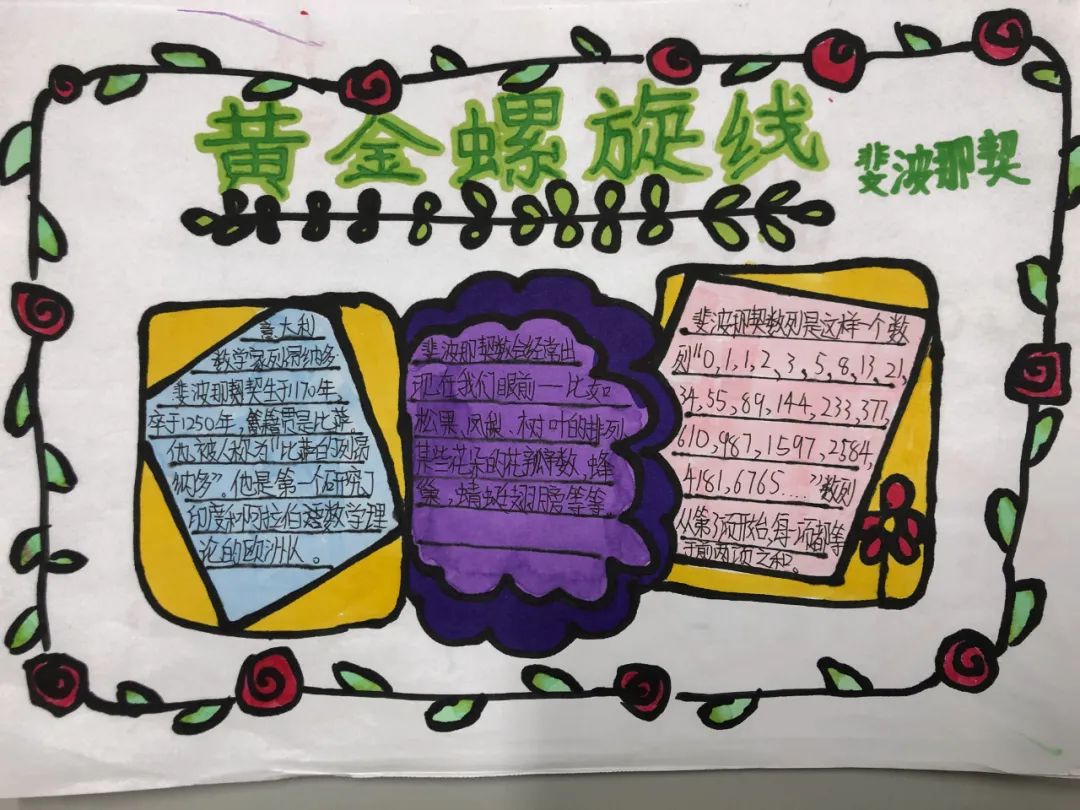 黄金螺旋线
斐波那契
意大利
数学家列昂纳多
斐波那契契生于1170年,
卒于1250年,籍贯是比萨。
他被人称为"比萨的列昂
纳多"。他是第一个研究了
印度和阿拉伯数学理
论的欧洲人。
斐波那契数会经常出
现在我们眼前一比如
松果、凤梨、树叶的排列
某些花朵的花瓣数,蜂
巢,蜻蜓翅膀等等。
斐波那契数列是这样一个数
列"0,1,1,2,3,5,8,13,21,
34,55,89,144,233,377,
610,987,1597,2584,
4181,6765...."数列
从第3项开始,每一项都等
于前两项之和。